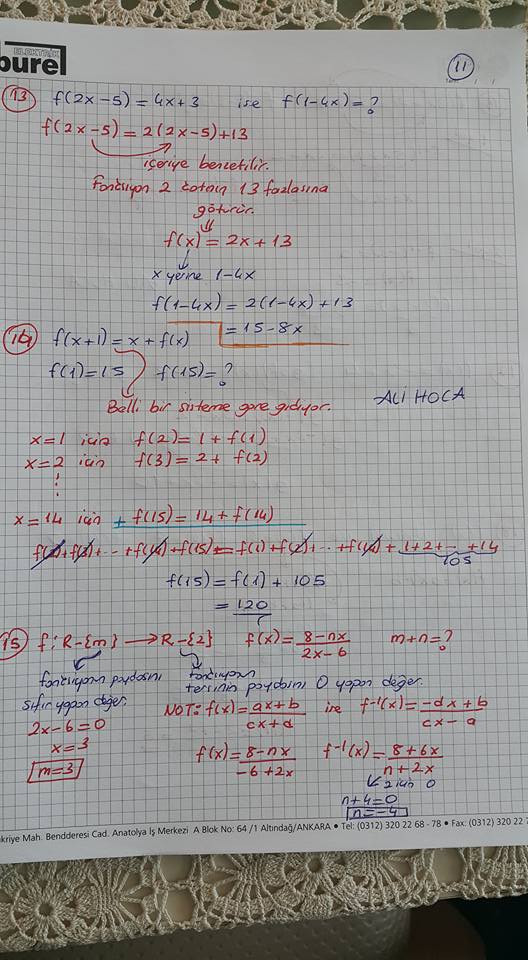 ELEKTRİK
burel
11
13 f(2x-5) = 4x+3 ise f(1-4x) = ?
f(2x-5) = 2(2x-5)+13
içeriye benzetilir.
Fonksiyon 2 katının 13 fazlasına
götürür.
f(x) = 2x+13
x yerine 1-4x
f(1-4x) = 2(1-4x)+13
= 15-8x
14 f(x+1) = x + f(x)
f(1) = 15 f(15) = ?
Belli bir sisteme göre gidiyor.
ALİ HOCA
x=1 için f(2) = 1 + f(1)
x=2 için f(3) = 2 + f(2)
x=14 için + f(15) = 14 + f(14)
f(2)+f(3)+...+f(14)+f(15) = f(1)+f(2)+...+f(14)+1+2+...+14
105
f(15) = f(1) + 105
= 120
15 f: R-{m} → R-{2} f(x) = (8-nx)/(2x-6) m+n = ?
fonksiyonun paydasını
sıfır yapan değer.
fonksiyonun
tersinin paydasını 0 yapan değer.
2x-6=0
x=3
m=3
NOT: f(x) = (ax+b)/(cx+d) ise f⁻¹(x) = (-dx+b)/(cx-a)
f(x) = (8-nx)/(-6+2x) f⁻¹(x) = (8+6x)/(n+2x)
2 için 0
n+4=0
n=-4
akriye Mah. Bendderesi Cad. Anatolya İş Merkezi A Blok No: 64 /1 Altındağ/ANKARA • Tel: (0312) 320 22 68 - 78 • Fax: (0312) 320